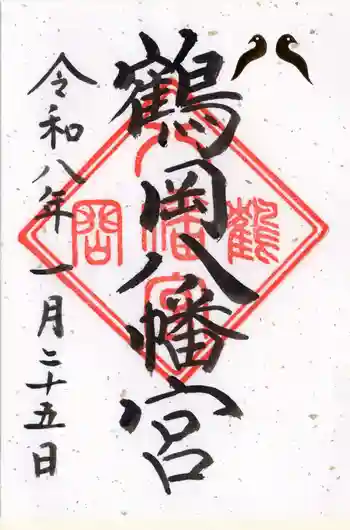 鶴岡八幡宮
令和八年一月二十五日
鶴岡八幡宮